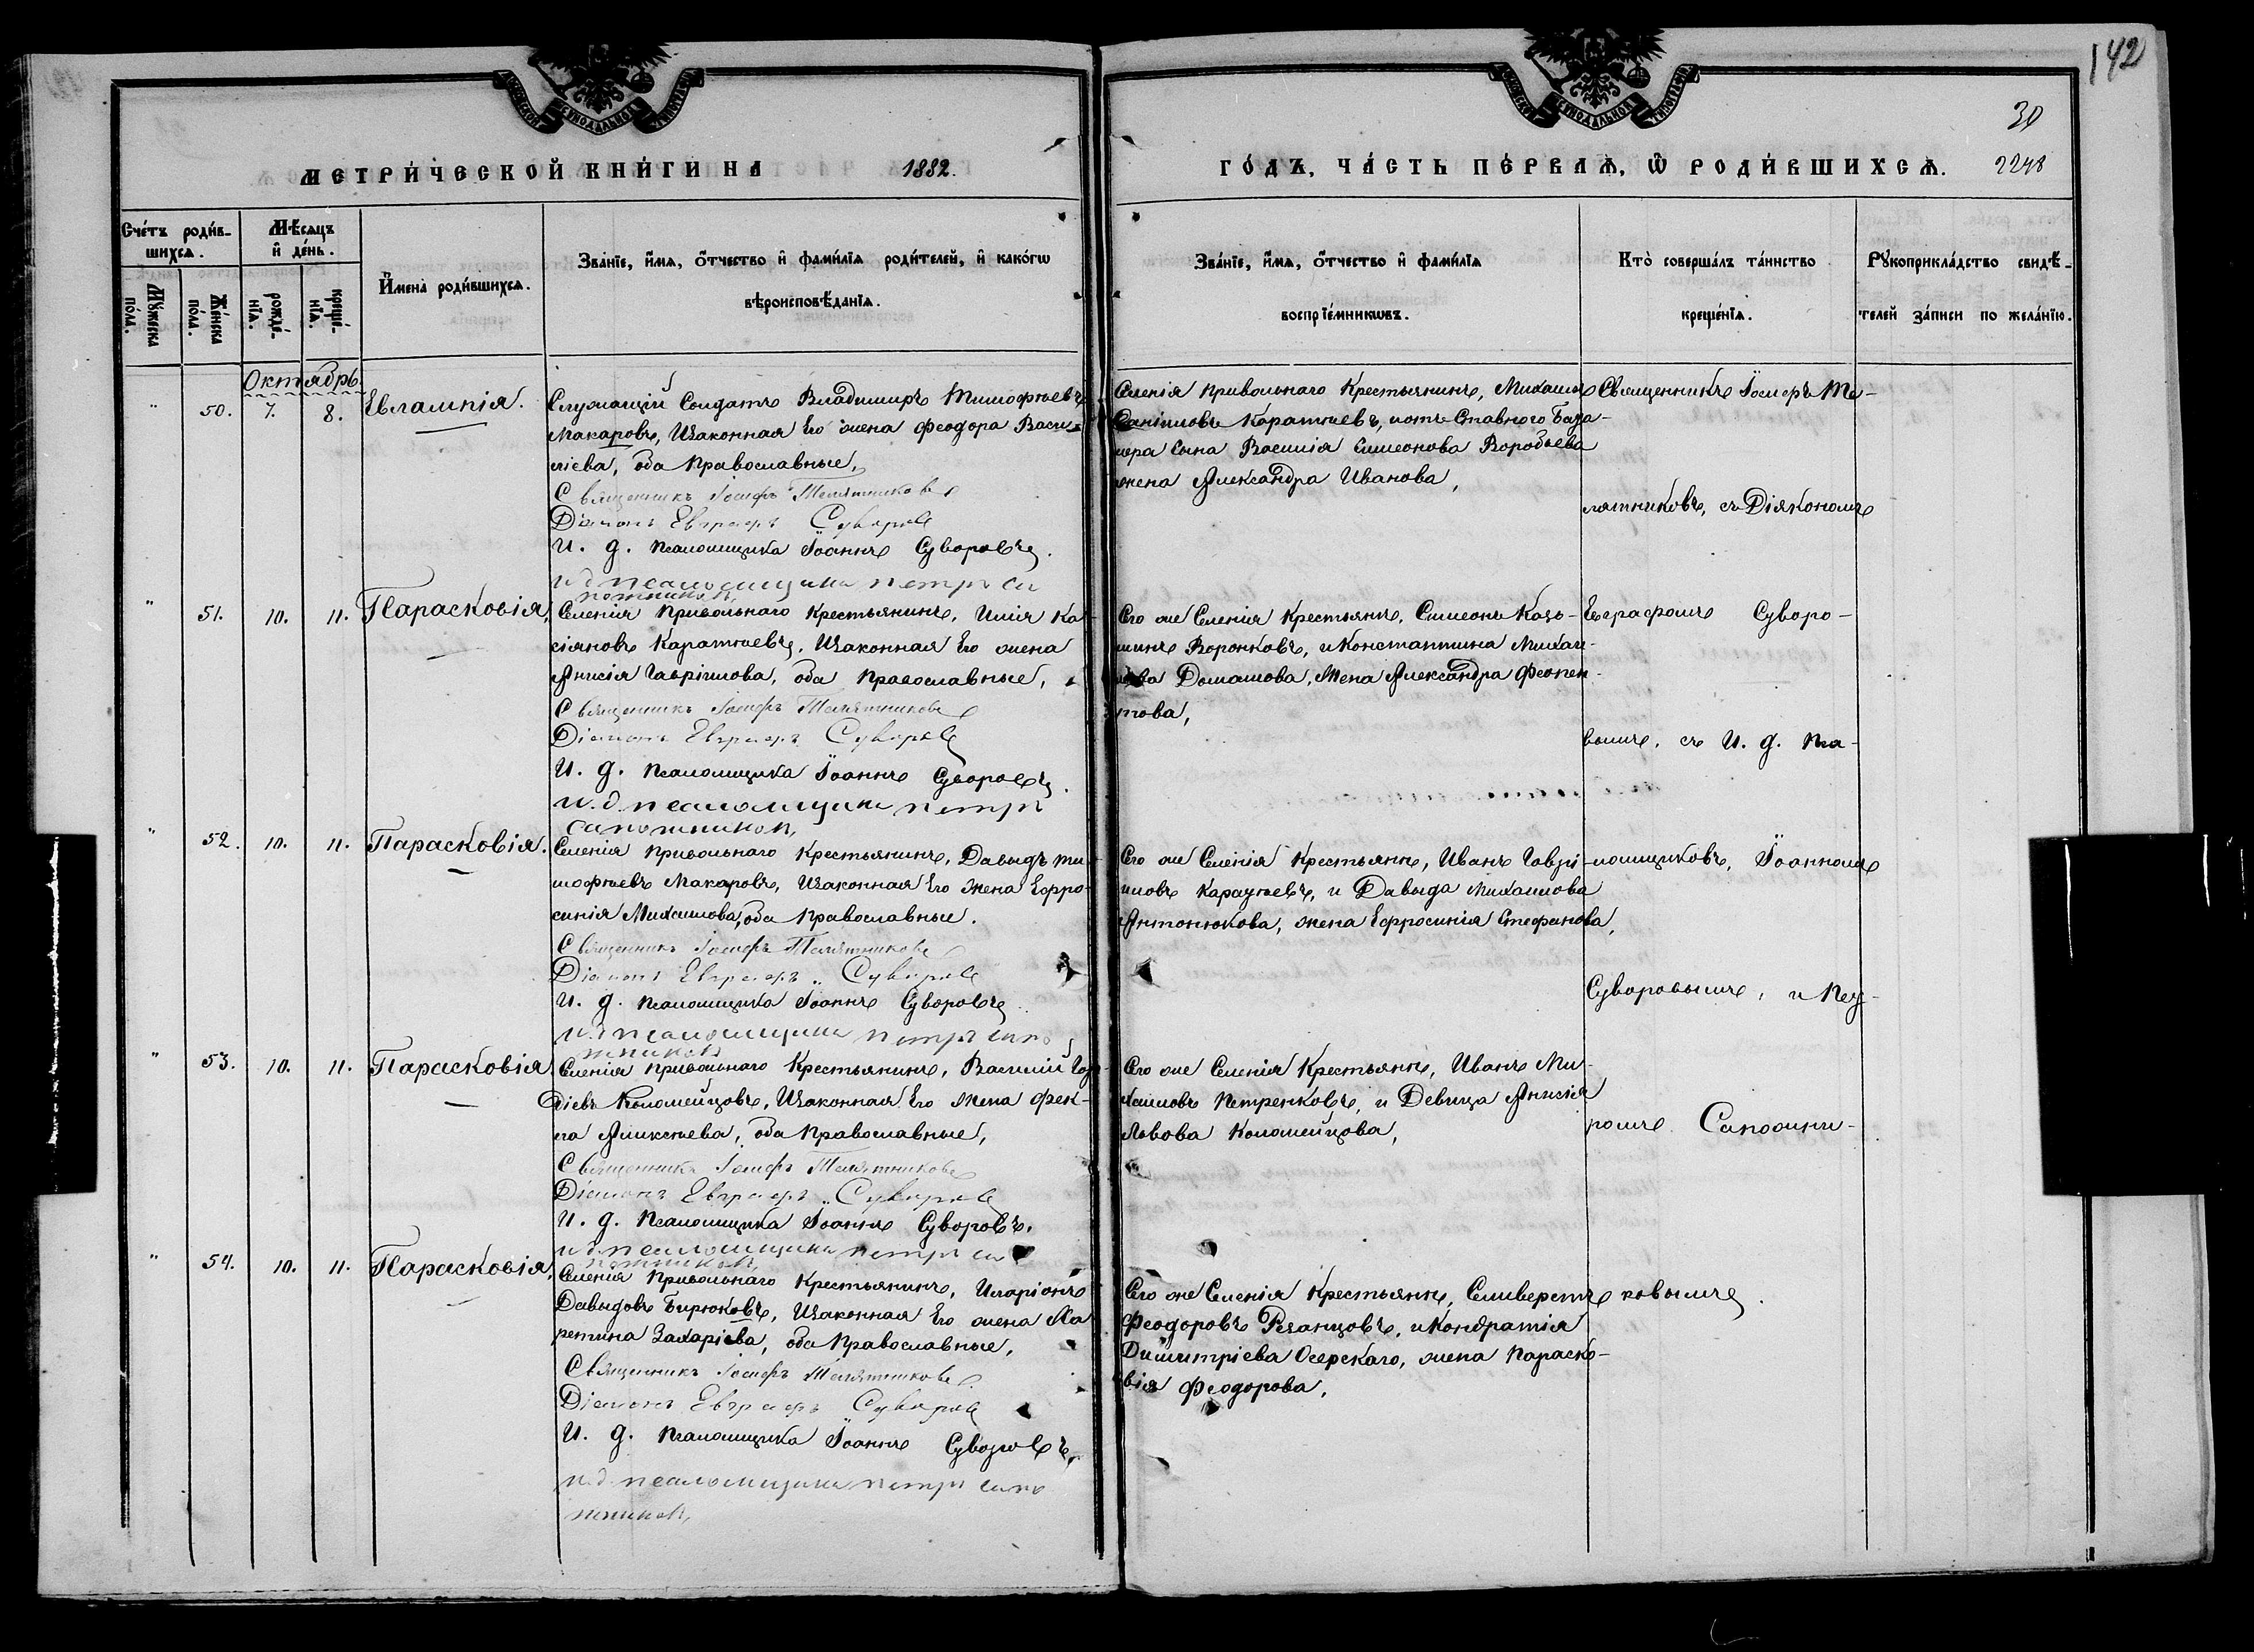 142
30
МЕТРИ́ЧЕСКОЙ КНИ́ГИ НА 1882.
ГО́ДЪ, ЧА́СТЬ ПЕ́РВАѦ, Ѡ҆ РОДИ́ВШИХСѦ. 2248
Сче́тъ роди́в-
шихсѧ.
Му́жеска по́ла.
Же́нска по́ла.
Мѣ́сяцъ и҆ де́нь.
рожде́-нїѧ.
креще́-нїѧ.
И҆мена̀ роди́вшихсѧ.
Зва́нїе, и҆́мѧ, ѻ҆́тчество и҆ фами́лїѧ роди́телей, и҆ како́гѡ
вѣроисповѣ́данїѧ.
Зва́нїе, и҆́мѧ, ѻ҆́тчество и҆ фами́лїѧ
воспрїе́мникѡвъ.
Кто̀ соверша́лъ та́инство
креще́нїѧ.
Рꙋкоприкла́дство свидѣ́-
телей за́писи по жела́нїю.
Октябрь
" 50. 7. 8. Евлампія.
Служащій Солдатъ Владимиръ Тимофѣевъ
Макаровъ, Изаконная Его жена Феодора Васи-
ліева, оба православные,
Священникъ Іосифъ Телятниковъ
Діаконъ Евграфъ Суворовъ
И. д. псаломщика Іоаннъ Суворовъ.
и д псаломщика петръ са
пожников,
Селенія Привольнаго Крестьянинъ, Михаилъ
Даніиловъ Каратѣевъ,
сына Василія Симеонова Воробьева
жена Александра Иванова,
Священникъ Іосифъ Те-
лятниковъ, съ Діякономъ
" 51. 10. 11. Парасковія,
Селенія Привольнаго Крестьянинъ, Илія Ка-
сіяновъ Каратѣевъ, Изаконная Его жена
Анисія Гавріилова, оба Православные,
Священникъ Іосифъ Телятниковъ
Діаконъ Евграфъ Суворовъ
И. д. псаломщика Іоаннъ Суворовъ.
и. д. псаломщика петръ
сапожников,
Сего же Селенія Крестьяне, Симеонъ Козь-
минъ Воронковъ, и Константина Михаи-
лова Домашова, жена Александра Феопен-
това,
Евграфомъ Суворо-
вымъ, съ И. д. Пса-
" 52. 10. 11. Парасковія.
Селенія Привольнаго Крестьянинъ, Давыдъ ти-
мофѣевъ Макаровъ, Изаконная Его жена Ефро-
синія Михаилова, оба православные.
Священникъ Іосифъ Телятниковъ
Діаконъ Евграфъ Суворовъ
И. д. псаломщика Іоаннъ Суворовъ
и. д псаломщика петръ сапо
жников
Сего же Селенія Крестьяне, Иванъ Гаврі-
иловъ Караутѣевъ, и Давыда Михаилова
Антонюкова, жена Ефросинія Стефанова,
ломщиковъ, Іоанномъ
Суворовымъ, и Пет-
" 53. 10. 11. Парасковія
Селенія Привольнаго Крестьянинъ, Василій Гор-
діевъ Коломейцовъ, Изаконная Его жена Фек-
ла Аликсѣева, оба Православные,
Священникъ Іосифъ Телятниковъ
Діаконъ Евграфъ Суворовъ
И. д. псаломщика Іоаннъ Суворовъ.
и д. псаломщика петръ са
пожников,
Сего же Селенія Крестьяне, Иванъ Ми-
хаиловъ Петренковъ, и Девица Анисія
Львова Коломейцова,
ромъ Сапожни-
" 54. 10. 11. Парасковія,
Селенія Привольнаго Крестьянинъ, Иларіонъ
Давыдовъ Бирюковъ, Изаконная Его жена Ха
ретина Захаріева, оба Православные,
Священникъ Іосифъ Телятниковъ
Діаконъ Евграфъ Суворовъ
И. д. псаломщика Іоаннъ Суворовъ,
и. д. псаломщика петръ сапо
жников,
Сего же Селенія Крестьяне, Селиверстъ
Феодоровъ Резанцовъ, и Кондратія
Димитріева Осерскаго, жена Параско-
вія Феодорова,
ковымъ.